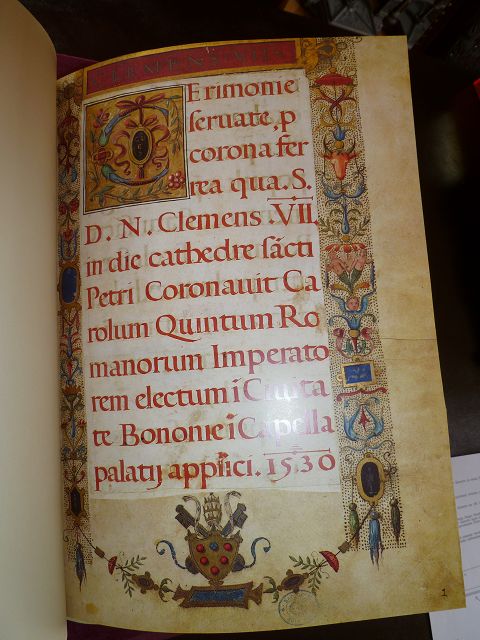 CLEMENS VII
Cerimonie
seruate, p
corona fer
rea qua. S.
D. N. Clemens .VII.
in die cathedre sācti
Petri Coronauit Ca
rolum Quintum Ro
manorum Imperato
rem electum ī Ciuita
te Bononie ī Capella
palatij applici. 1530
1